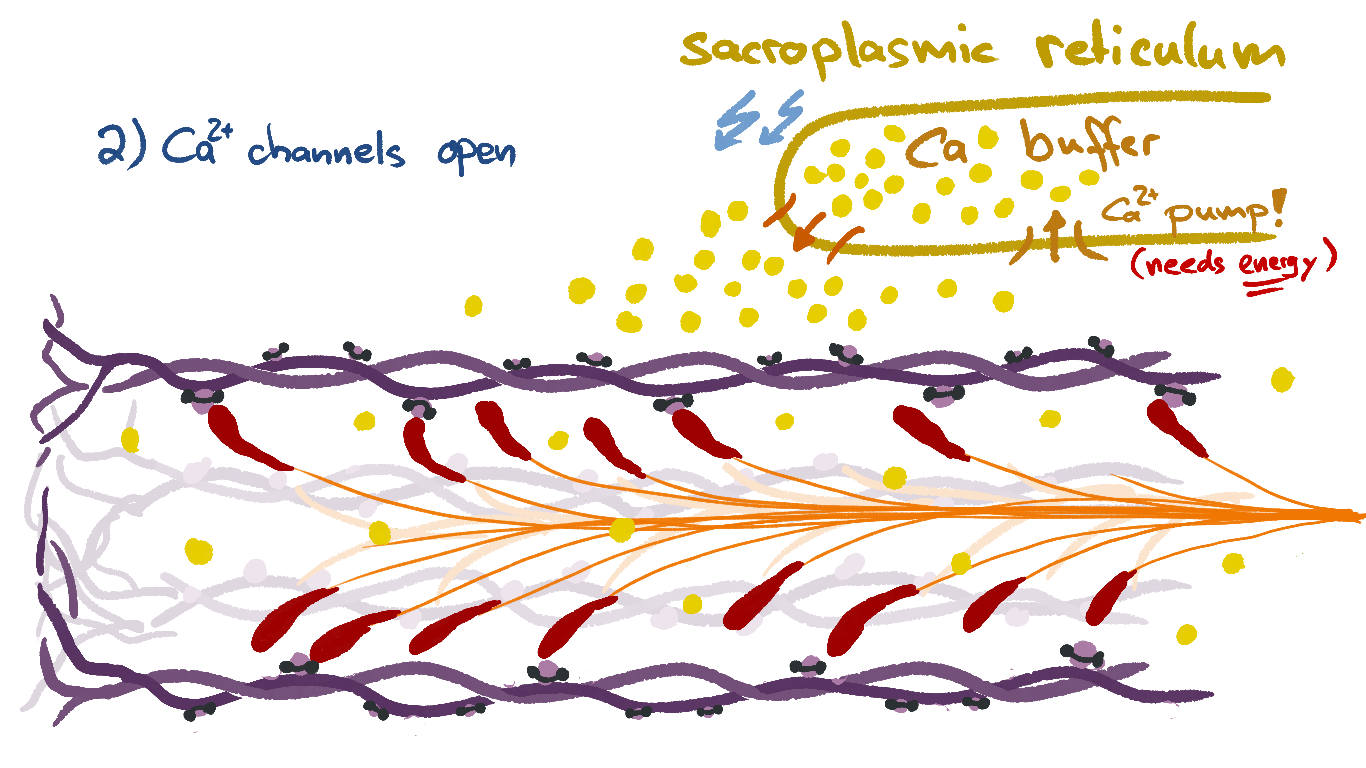 sacroplasmic reticulum
2) Ca²⁺ channels open
Ca buffer
Ca²⁺ pump!
(needs energy)